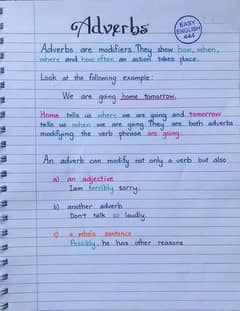 Adverbs
EASY
ENGLISH
444
Adverbs are modifiers. They show how, when,
where and how often an action takes place.
Look at the following example:
We are going home tomorrow.
Home tells us where we are going and tomorrow
tells us when we are going. They are both adverbs
modifying the verb phrase are going.
An adverb can modify not only a verb but also
a) an adjective
I am terribly sorry.
b) another adverb
Don't talk so loudly.
c) a whole sentence
Possibly, he has other reasons